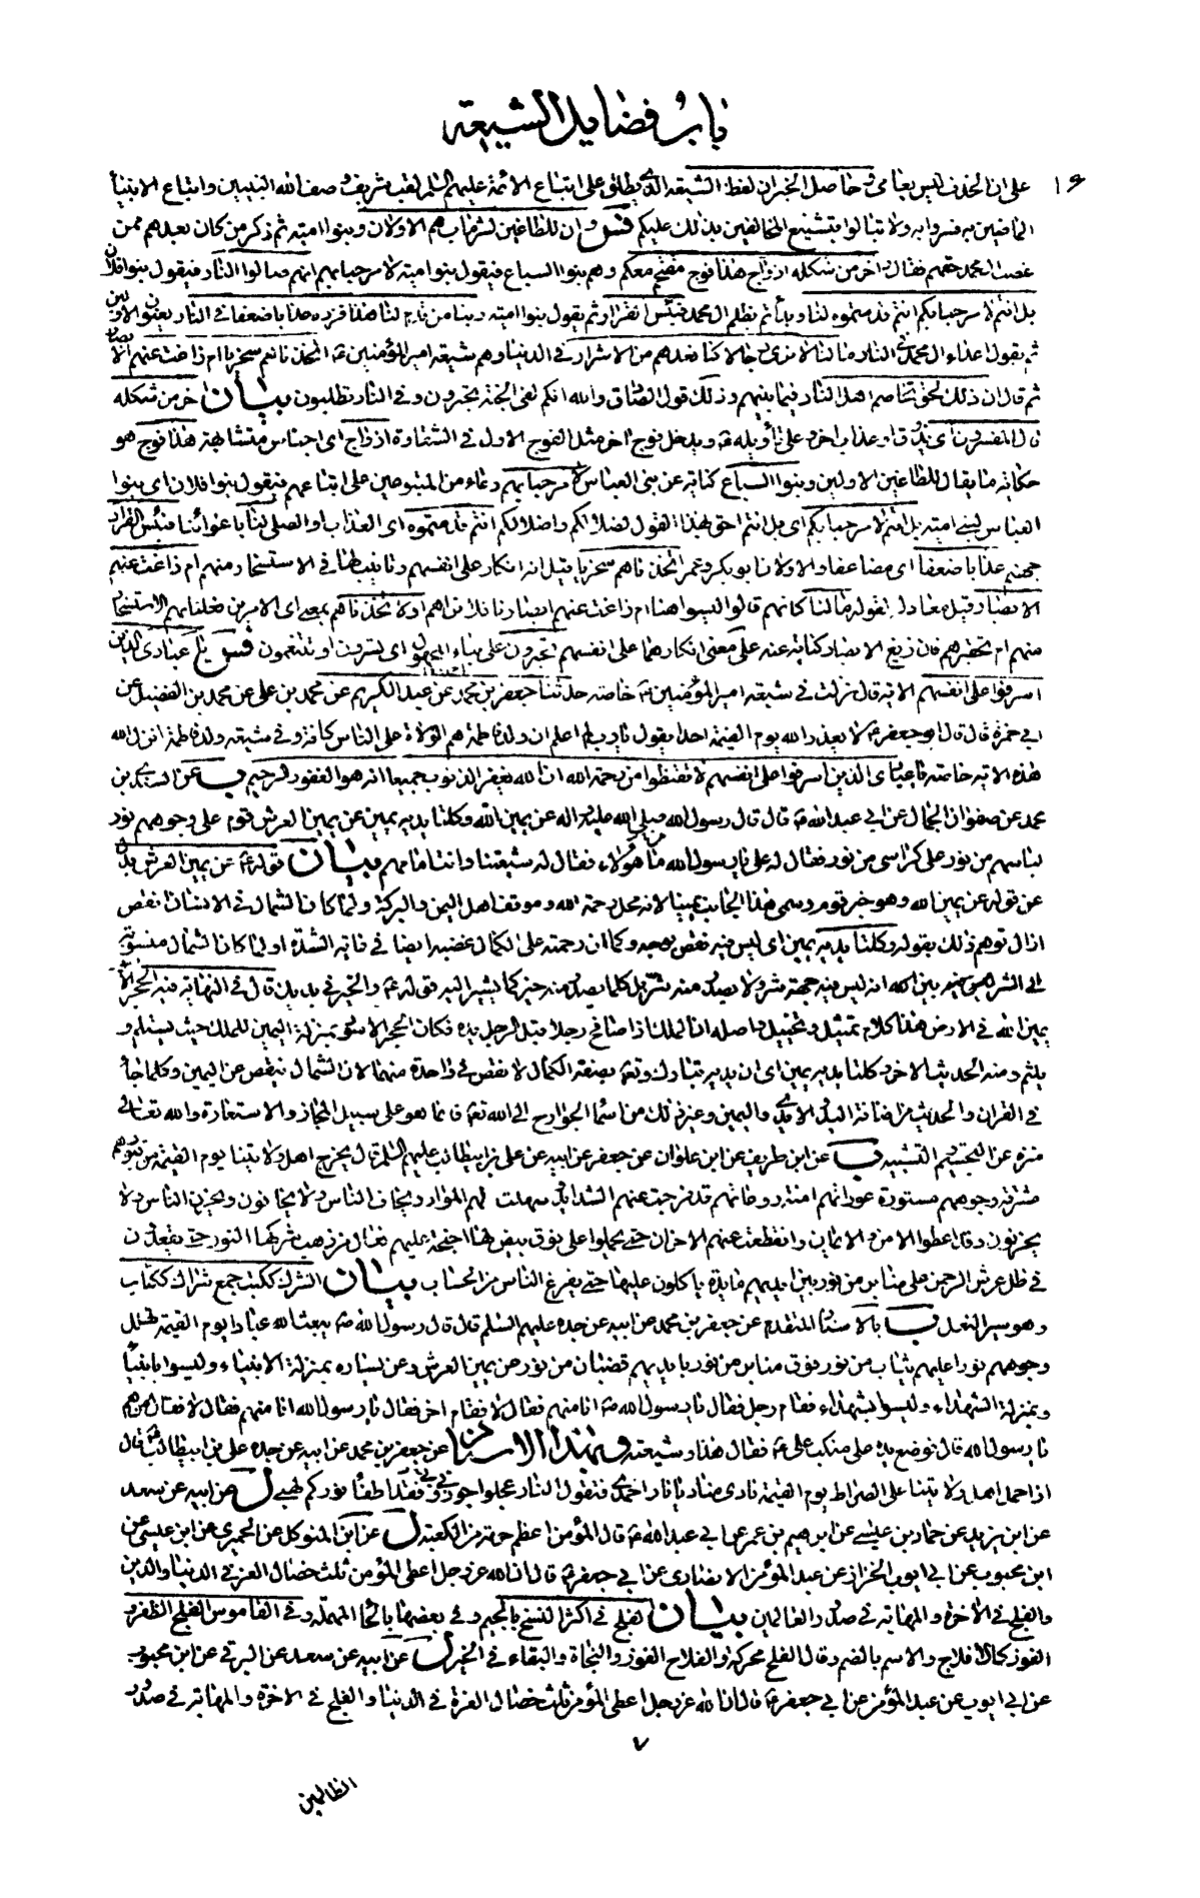 باب فضايل الشيعة
١٦
على ان الحذف ليس بعامى و حاصل الخبر ان لفظ الشيعه الذي يطلق على اتباع الأئمة عليهم السلم لقب شريف وصف الله النبيين واتباع الانبيأ
الماضين به فسروا به ولا تبالوا بتشنيع المخالفين بذلك عليكم فس وان للطاغين لشر ماب هم الاولان وبنوا اميته ثم ذكر من كان بعدهم ممن
غصب ال محمد حقهم فقال واخر من شكله ازواج هذا فوج مقتحم معكم وهم بنوا السباع فيقول بنوا اميته لا مرحبا بهم انهم صالوا النار فيقول بنوا فلان
بل انتم لا مرحبا بكم انتم قدمتموه لنا وبدأتم بظلم ال محمد فبئس القرار ثم يقول بنوا اميته ربنا من قدم لنا هذا فزده عذابا ضعفا في النار يعنون الاولين
ثم يقول اعداء ال محمد في النار ما لنا لا نرى رجالا كنا نعدهم من الاشرار في الدنيا وهم شيعة امير المؤمنين ع اتخذناهم سخريا ام زاغت عنهم الابصار
ثم قال ان ذلك لحق تخاصم اهل النار فيما بينهم وذلك قول الصادق والله انكم لفى الجنة تحبرون وفي النار تطلبون بيان اخر من شكله
قال المفسرون اى مذوقا وعذاب اخر وعلى تأويله ع ويدخل فوج اخر مثل الفوج الاول في الشقاوة ازواج اى اجناس متشابهة هذا فوج هو
حكاية ما يقال للطاغين الاولين وبنوا السباع كناية عن بنى العباس لا مرحبا بهم دعاء من المتبوعين على اتباعهم فيقول بنوا فلان اى بنوا
العباس لبنى اميته بل انتم لا مرحبا بكم اى بل انتم احق بهذا القول لضلالكم واضلالكم انتم قدمتموه اى العذاب او الصلى لنا باغوائنا فبئس القرار
جهنم عذابا ضعفا اى مضاعفا والاولان ابو بكر وعمر اتخذناهم سخريا قيل انه انكار على انفسهم وتانيب لها في الاستسخار منهم ام زاغت عنهم
الابصار وقيل معادل لقوله ما لنا كانهم قالوا اليسوا هنا ام زاغت عنهم ابصارنا فلا نراهم او لاتخذناهم بمعنى اى الامرين فعلنا بهم الاستسخار
منهم ام تحقيرهم فان زيغ الابصار كناية عنه على معنى انكارهما على انفسهم تحبرون على بناء المجهول اى تسرون او تنعمون فس يا عبادى الذين
اسرفوا على انفسهم الايه قال نزلت في شيعة امير المؤمنين ع خاصه حدثنا جعفر بن محمد عن عبد الكريم عن محمد بن على عن محمد بن الفضيل عن
ابى حمزة قال قال ابو جعفر ع لا يعذر الله يوم القيمة احدا يقول يا رب لم اعلم ان ولد فاطمة هم الولاة على الناس كافة وفى شيعة ولد فاطمة انزل الله
هذه الايه خاصه يا عبادى الذين اسرفوا على انفسهم لا تقنطوا من رحمة الله ان الله يغفر الذنوب جميعا انه هو الغفور الرحيم ب عن السندى بن
محمد عن صفوان الجمال عن ابي عبد الله ع قال قال رسول الله صلى الله عليه واله عن يمين الله وكلتا يديه يمين عن يمين العرش قوم على وجوههم نور
لباسهم من نور على كراسى من نور فقال له على يا رسول الله من هؤلاء فقال له شيعتنا وانت امامهم بيان قوله ع عن يمين العرش بدل
عن قوله عن يمين الله وهو خبر قوم وسمى هذا الجانب يمينا لانه محل رحمة الله وموقف اهل اليمن والبركة ولما كان الشمال في الانسان انقص
ازال توهم ذلك بقوله وكلتا يديه يمين اى ليس فيه نقص بوجه وكما ان رحمته على الكمال غضبه ايضا في غاية الشدة او لما كان الشمال منسوبة
الى الشر بين انه ليس فيه جهة شر ولا يصدر منه شر بل كلما يصدر منه خير كما يشير اليه قوله ع والخير في يديك قال في النهاية فيه الحجر الاسود
يمين الله في الارض هذا كلام تمثيل وتخييل واصله ان الملك اذا صافح رجلا قبل الرجل يده فكان الحجر الاسود بمنزلة اليمين للملك حيث يستلم و
يلثم ومنه الحديث الاخر وكلتا يديه يمين اى ان يديه تبارك وتع بصفة الكمال لا نقص فى واحدة منهما لان الشمال ينقص عن اليمين وكلما جأ
في القران والحديث من اضافة اليد والايدى واليمين وغير ذلك من اسما الجوارح الى الله تع فانما هو على سبيل المجاز والاستعارة والله تعالى
منزه عن التجسيم والتشبيه ب عن ابن طريف عن ابن علوان عن جعفر عن ابيه عن على بن ابيطالب عليهم السلم قال يخرج اهل ولايتنا يوم القيمة من قبورهم
مشرقة وجوههم مستورة عوراتهم امنة روعاتهم قد فرجت عنهم الشدايد وسهلت لهم الموارد يخاف الناس ولا يخافون ويحزن الناس ولا
يحزنون وقد اعطوا الامن والايمان وانقطعت عنهم الاحزان حتى يحملوا على نوق بيض لها اجنحة عليهم نعال من ذهب شركها النور حتى يقعدون
في ظل عرش الرحمن على منابر من نور بين ايديهم مايدة ياكلون عليها حتى يفرغ الناس من الحساب بيان الشرك ككتب جمع شراك ككتاب
وهو سير النعل ب بالاسناد المتقدم عن جعفر بن محمد عن ابيه عن جده عليهم السلم قال قال رسول الله ص يبعث الله عبادا يوم القيمة تهلل
وجوههم نورا عليهم ثياب من نور فوق منابر من نور بايديهم قضبان من نور عن يمين العرش وعن يساره بمنزلة الانبياء وليسوا بانبيأ
وبمنزلة الشهداء وليسوا بشهداء فقام رجل فقال يا رسول الله ص انا منهم فقال لا فقام اخر فقال يا رسول الله انا منهم فقال لا فقال من هم
يا رسول الله قال فوضع يده على منكب على ع فقال هذا وشيعته وبهذا الاسناد عن جعفر بن محمد عن ابيه عن جده على بن ابيطالب ع قال
اذا حمل اهل ولايتنا على الصراط يوم القيمة نادى مناد يا نار اخمدى فتقول النار عجلوا جوزونى فقد اطفأ نوركم لهبى ل عن ابيه عن سعد
عن ابن يزيد عن حماد بن عيسى عن ابرهيم بن عمر عن ابي عبد الله ع قال المؤمن اعظم حرمة من الكعبة ل عن ابن المتوكل عن الحميري عن ابن عيسى عن
ابن محبوب عن ابي ايوب الخزاز عن عبد المؤمن الانصارى عن ابي جعفر ع قال ان الله عز وجل اعطى المؤمن ثلث خصال العز في الدنيا والدين
والفلج في الاخرة والمهابة في صدور العالمين بيان الفلج في اكثر النسخ بالجيم وفى بعضها بالحا المهملة وفي القاموس الفلج الظفر و
الفوز كالافلاج والاسم بالضم وقال الفلح محركة والفلاح الفوز والنجاة والبقاء في الخير ل عن ابيه عن سعد عن البرقى عن ابن محبوب
عن ابي ايوب عن عبد المؤمن عن ابي جعفر ع قال ان الله عز وجل اعطى المؤمن ثلث خصال العزة في الدنيا والفلج في الاخرة والمهابة في صدور
٧
الظالمين